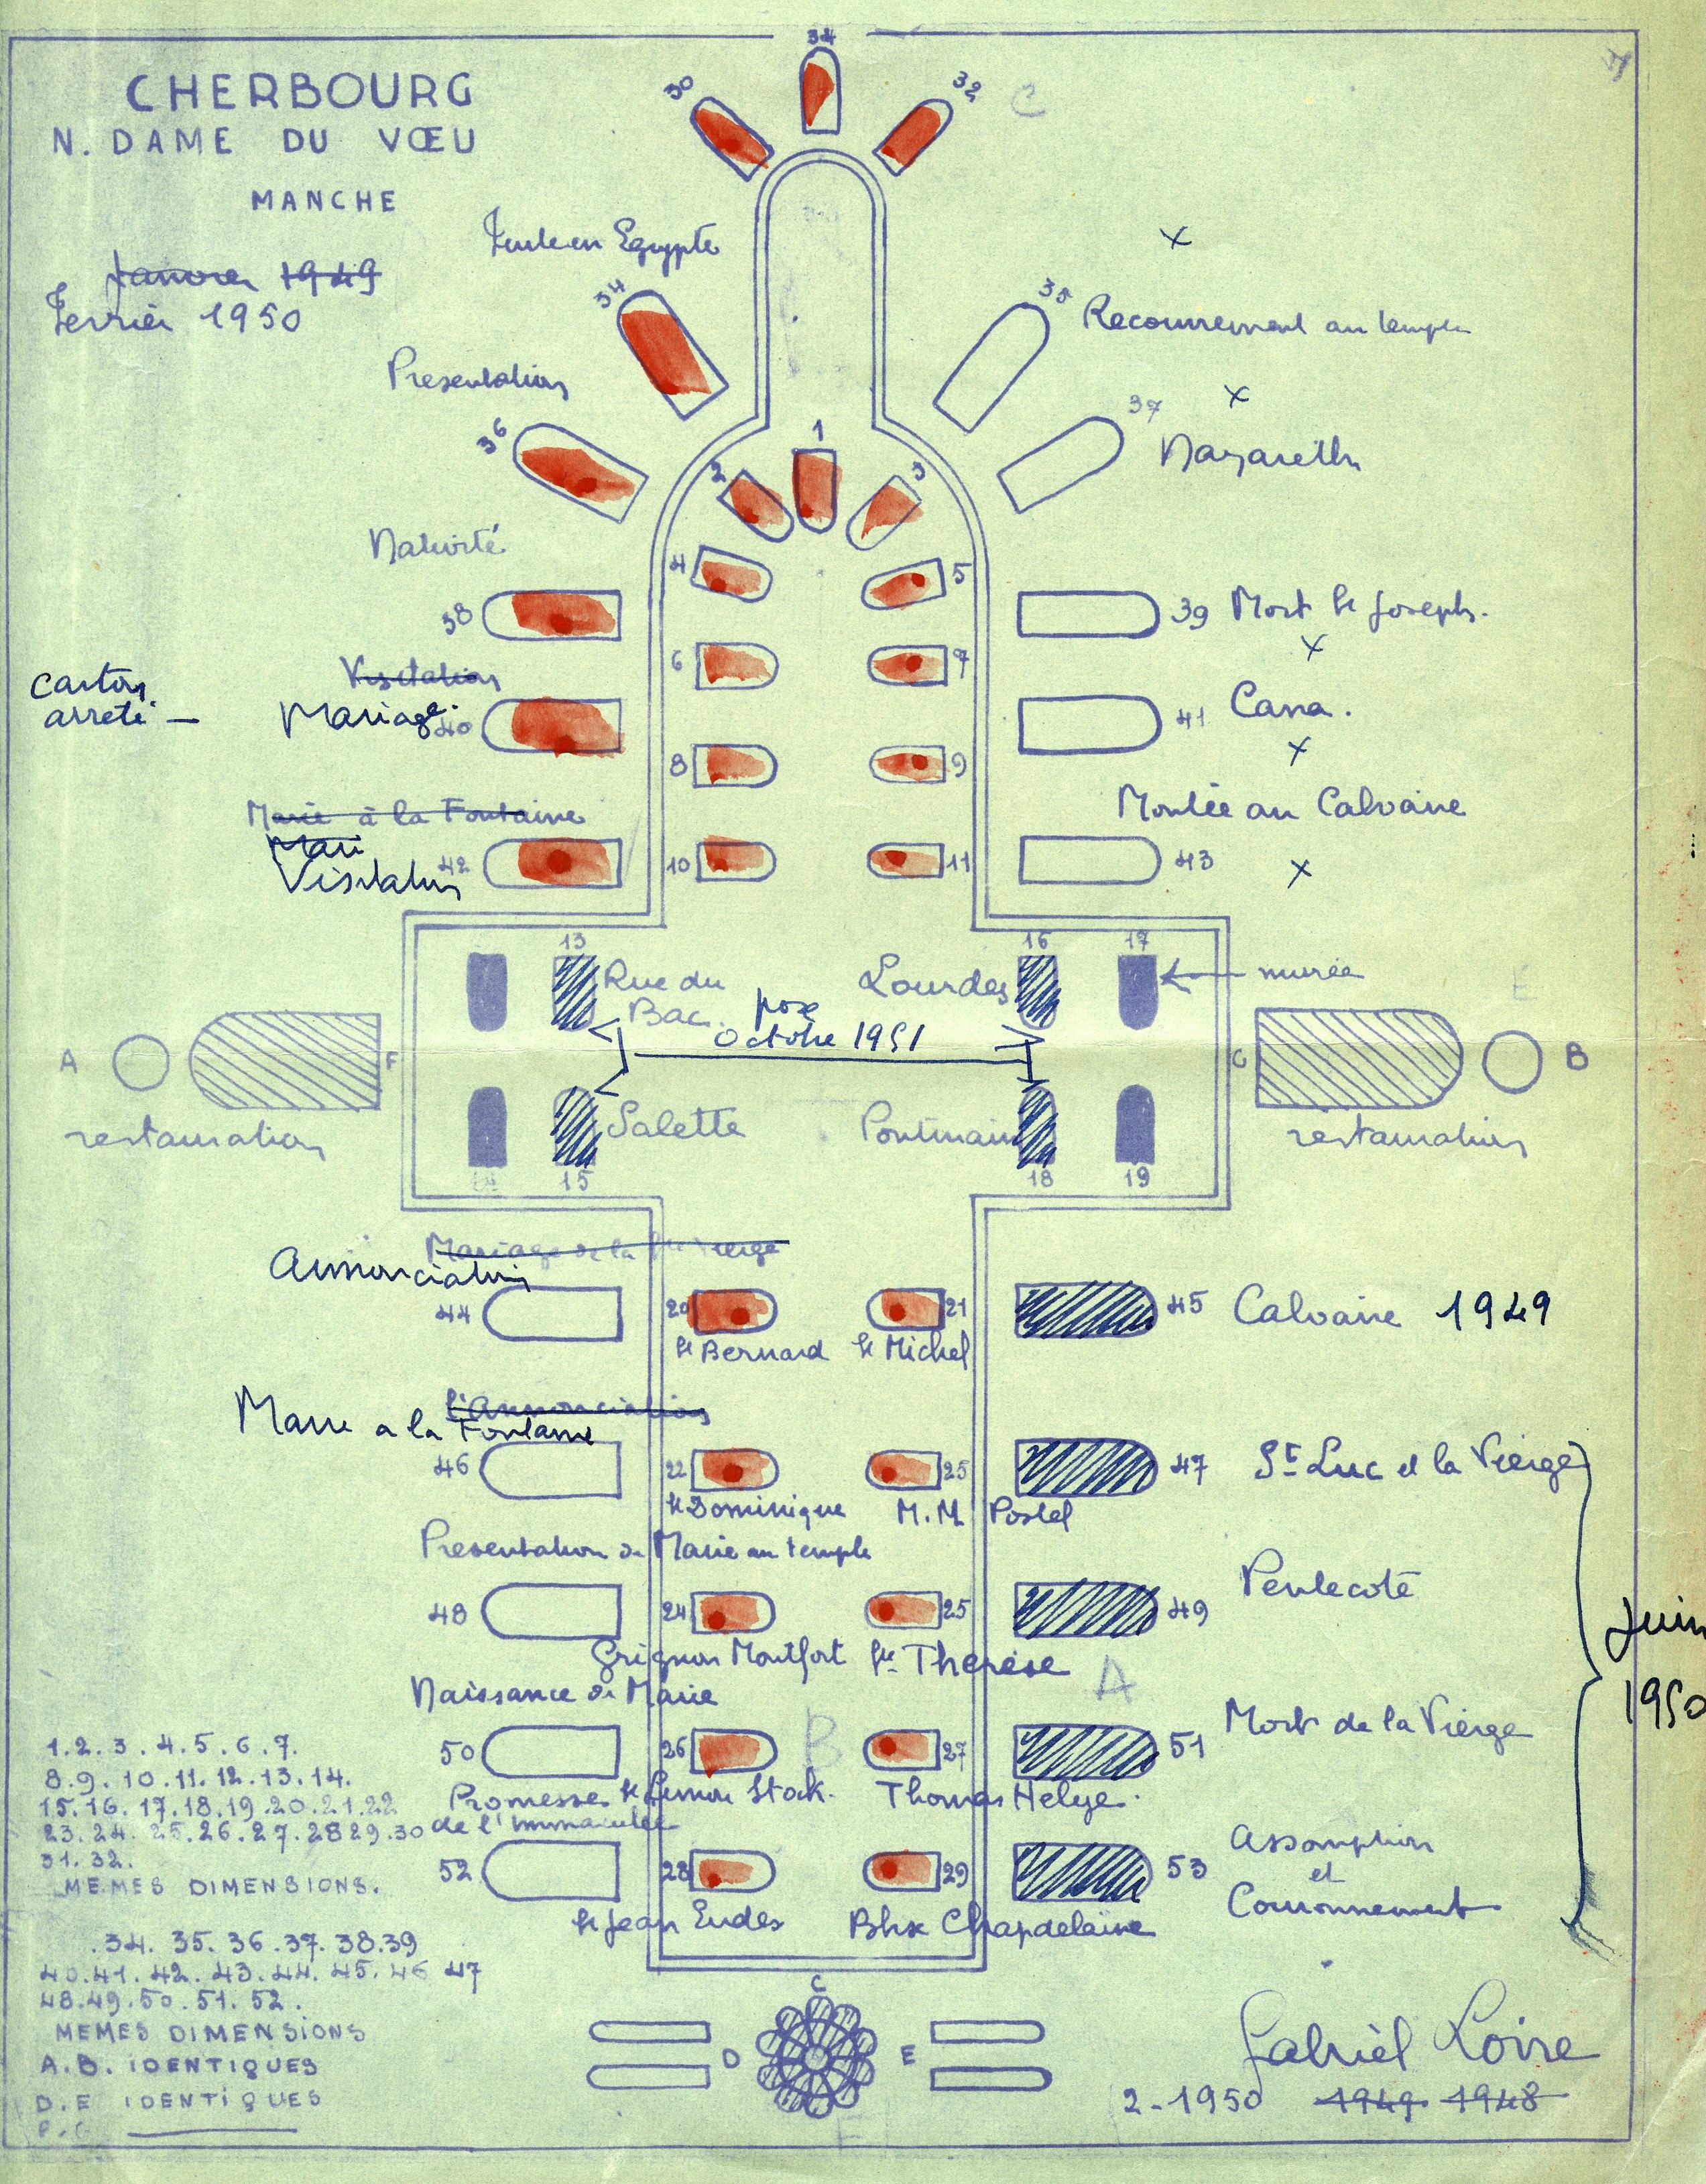 CHERBOURG
N. DAME DU VŒU
MANCHE
Janvier 1949
Fevrier 1950
34
30
32
C
Fuite en Egypte
34
35
Recouvrement au temple
Presentation
36
37
Nazareth
1
2
3
Nativité
4
5
38
39 Mort St Joseph.
6
7
Visitation
carton
arreté —
Mariage.
40
41 Cana.
8
9
Marie à la Fontaine
Mari
Visitation
42
Montée au Calvaire
10
11
43
13
16
17
Rue du
Bac.
Lourdes
murée
pose
Octobre 1951
A
F
C
B
E
restauration
Salette
Pontmain
restauration
15
18
19
Mariage de la Ste Vierge
Annonciation
44
20
21
45 Calvaire 1949
St Bernard
St Michel
l'Annonciation
Marie a la Fontaine
46
22
25
47 St Luc et la Vierge
St Dominique
M.M. Postel
Presentation de Marie au temple
48
24
25
49
Pentecote
Grignon Montfort
Ste Therèse
A
Juin
1950
Naissance de Marie
50
26
B
27
51
Mort de la Vierge
St Simon Stock.
Thomas Helye.
Promesse
de l'immaculée
52
28
29
53
Assomption
et
Couronnement
St Jean Eudes
Bhx Chapdelaine
1.2.3.4.5.6.7.
8.9.10.11.12.13.14.
15.16.17.18.19.20.21.22
23.24.25.26.27.28 29.30
31.32.
MEMES DIMENSIONS.
.34. 35. 36. 37. 38.39
40.41.42.43.44.45.46 47
48.49.50.51.52.
MEMES DIMENSIONS
A.B. IDENTIQUES
D.E IDENTIQUES
F.C
C
D
E
F
Gabriel Loire
2-1950 1949 1948